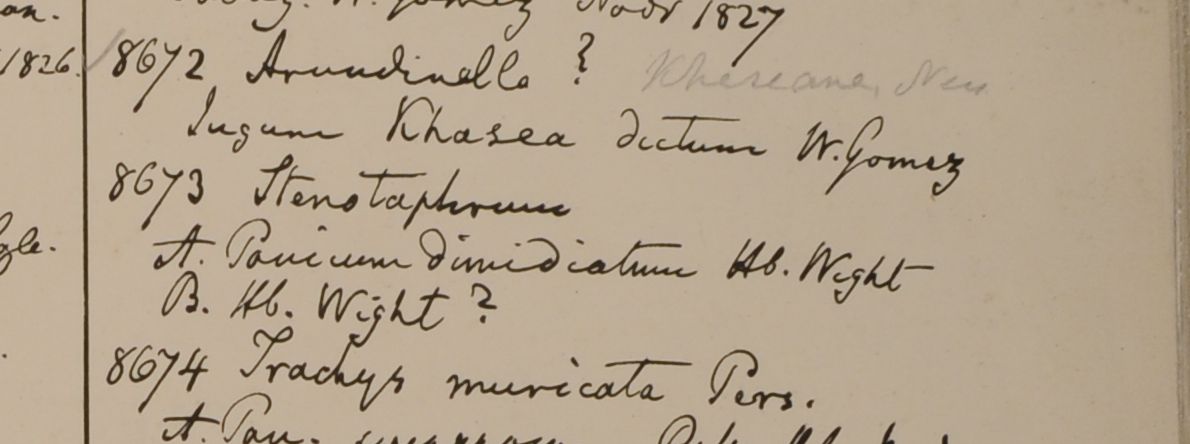 an.
W. Gomez Novr 1827
1826.
8672 Arundinella ? Khaseana, Nees
Jugum Khasea dictum W. Gomez
8673 Stenotaphrum
A. Panicum dimidiatum Hb. Wight
B. Hb. Wight ?
8674 Trachys muricata Pers.
A. Pan.